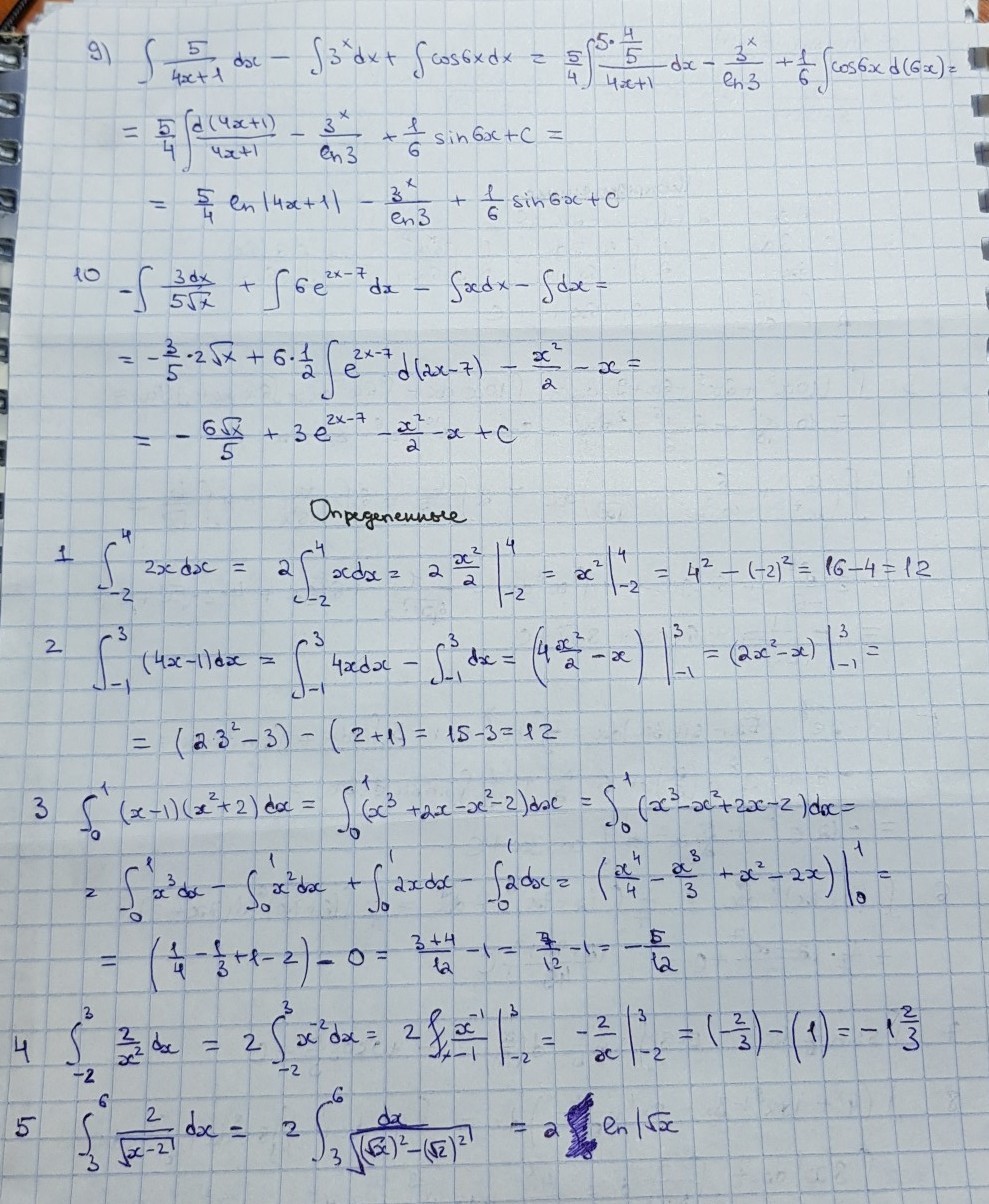 9) ∫ 5/(4x+1) dx − ∫3^x dx + ∫cos6x dx = 5/4 ∫ (5·4/5)/(4x+1) dx − 3^x/ln3 + 1/6 ∫cos6x d(6x) =
= 5/4 ∫ d(4x+1)/(4x+1) − 3^x/ln3 + 1/6 sin6x + C =
= 5/4 ln|4x+1| − 3^x/ln3 + 1/6 sin6x + C
10 −∫ 3dx/(5√x) + ∫6e^(2x−7) dx − ∫xdx − ∫dx =
= −3/5 · 2√x + 6·1/2 ∫e^(2x−7) d(2x−7) − x²/2 − x =
= − 6√x/5 + 3e^(2x−7) − x²/2 − x + C
Определенные
1 ∫_{−2}^{4} 2xdx = 2∫_{−2}^{4} xdx = 2 x²/2 |_{−2}^{4} = x² |_{−2}^{4} = 4² − (−2)² = 16−4 = 12
2 ∫_{−1}^{3} (4x−1)dx = ∫_{−1}^{3} 4xdx − ∫_{−1}^{3} dx = (4 x²/2 − x) |_{−1}^{3} = (2x²−x) |_{−1}^{3} =
= (2·3²−3) − (2+1) = 15−3 = 12
3 ∫_{0}^{1} (x−1)(x²+2)dx = ∫_{0}^{1} (x³+2x−x²−2)dx = ∫_{0}^{1} (x³−x²+2x−2)dx =
= ∫_{0}^{1} x³dx − ∫_{0}^{1} x²dx + ∫_{0}^{1} 2xdx − ∫_{0}^{1} 2dx = (x⁴/4 − x³/3 + x² − 2x) |_{0}^{1} =
= (1/4 − 1/3 + 1 − 2) − 0 = (3+4)/12 − 1 = 7/12 − 1 = −5/12
4 ∫_{−2}^{3} 2/x² dx = 2∫_{−2}^{3} x^(−2) dx = 2 x^(−1)/(−1) |_{−2}^{3} = −2/x |_{−2}^{3} = (−2/3) − (1) = −1 2/3
5 ∫_{3}^{6} 2/√(x−2) dx = 2∫_{3}^{6} dx/√((√x)²−(√2)²) = 2 ln|√x